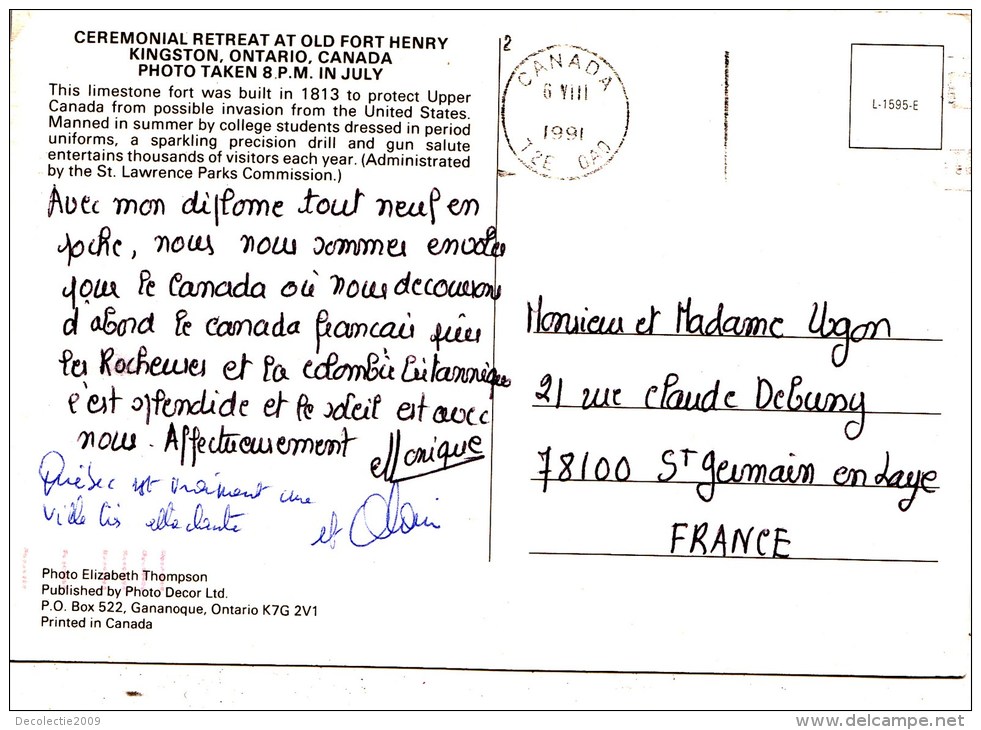 CEREMONIAL RETREAT AT OLD FORT HENRY
KINGSTON, ONTARIO, CANADA
PHOTO TAKEN 8 P.M. IN JULY
This limestone fort was built in 1813 to protect Upper
Canada from possible invasion from the United States.
Manned in summer by college students dressed in period
uniforms, a sparkling precision drill and gun salute
entertains thousands of visitors each year. (Administrated
by the St. Lawrence Parks Commission.)
Avec mon diplome tout neuf en
poche, nous nous sommes envolés
pour le Canada où nous decouvrons
d'abord le canada francais puis
les Rocheuses et la colombie Britannique
c'est splendide et le soleil est avec
nous. Affectueusement Monique
Québec est vraiment une
ville très
et Alain
Photo Elizabeth Thompson
Published by Photo Decor Ltd.
P.O. Box 522, Gananoque, Ontario K7G 2V1
Printed in Canada
2
CANADA
6 VIII
1991
T2E 0A0
L-1595-E
Monsieur et Madame Ugon
21 rue Claude Debussy
78100 ST Germain en Laye
FRANCE
Decolectie2009
www.delcampe.net